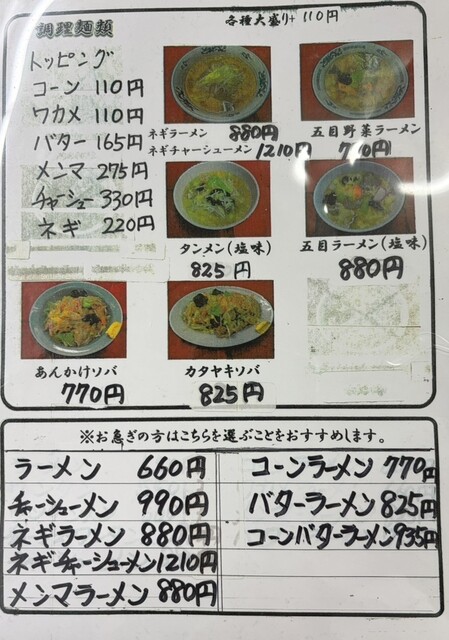 調理麺類
各種大盛り+110円
トッピング
コーン 110円
ワカメ 110円
バター 165円
メンマ 275円
チャーシュー 330円
ネギ 220円
ネギラーメン 880円
ネギチャーシューメン 1210円
五目野菜ラーメン
770円
タンメン(塩味)
825円
五目ラーメン(塩味)
880円
あんかけソバ
770円
カタヤキソバ
825円
※お急ぎの方はこちらを選ぶことをおすすめします。
ラーメン 660円
チャーシューメン 990円
ネギラーメン 880円
ネギチャーシューメン1210円
メンマラーメン 880円
コーンラーメン 770円
バターラーメン 825円
コーンバターラーメン935円